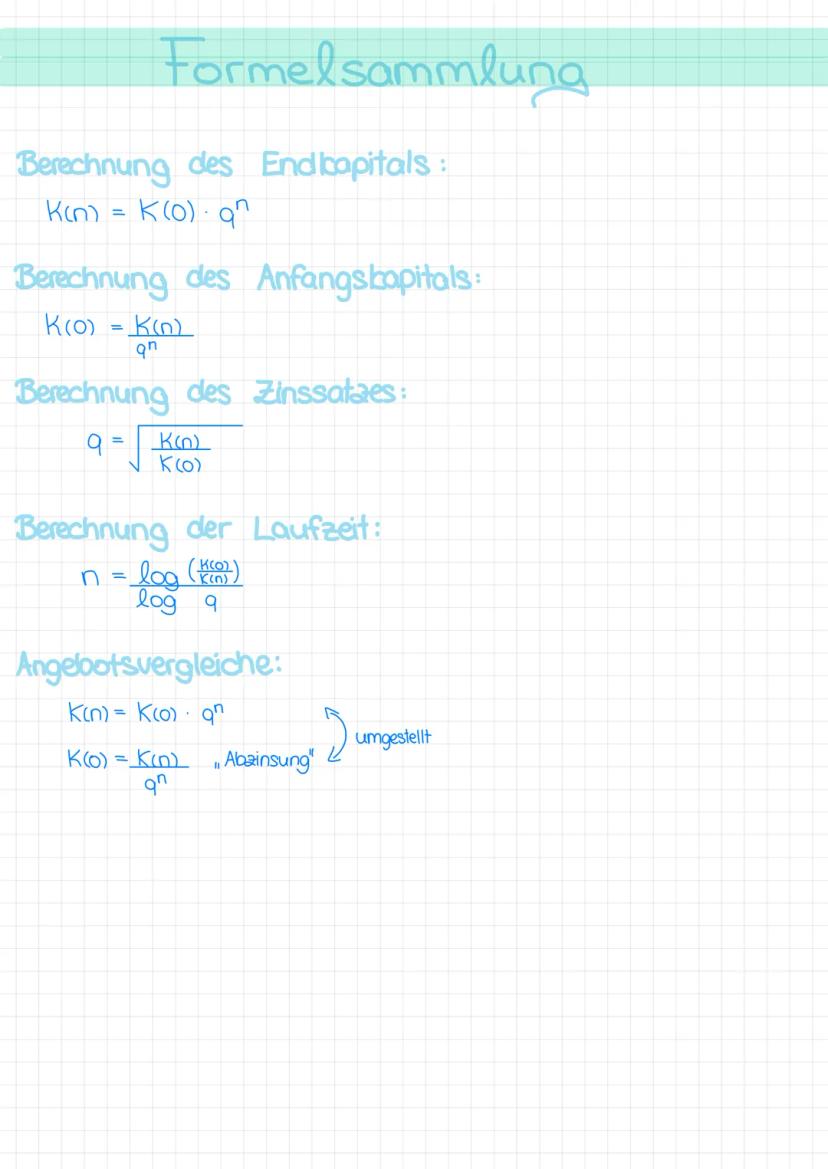 Formelsammlung
Berechnung des Endkapitals:
K(n) = K(0) · qⁿ
Berechnung des Anfangskapitals:
K(0) = K(n) / qⁿ
Berechnung des Zinssatzes:
q = √(K(n) / K(0))
Berechnung der Laufzeit:
n = log (K(0)/K(n)) / log q
Angebotsvergleiche:
K(n) = K(0) · qⁿ
umgestellt
K(0) = K(n) / qⁿ „Abzinsung"